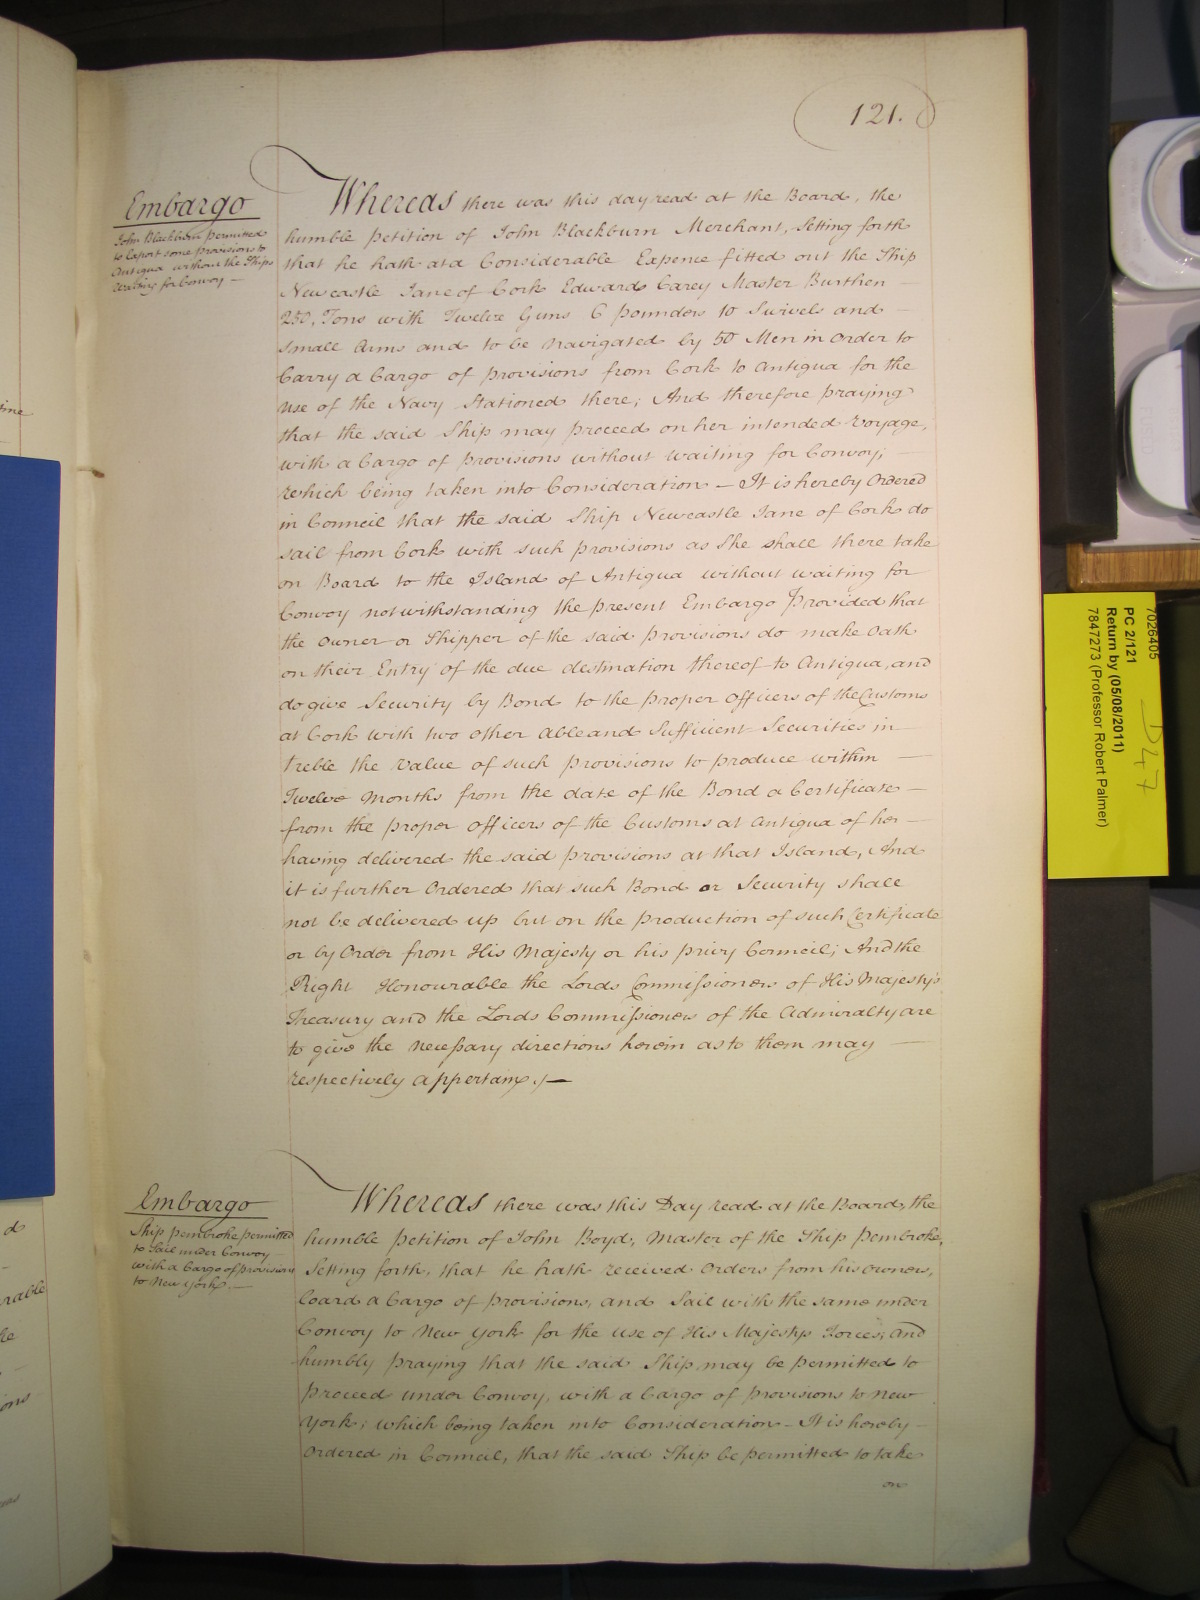 121.
Embargo
John Blackburn permitted
to Export some provisions to
Antigua without the Ships
waiting for Convoy —
Whereas there was this day read at the Board, the
humble petition of John Blackburn Merchant, Setting forth
that he hath at a Considerable Expence fitted out the Ship
Newcastle Jane of Cork Edward Carey Master Burthen —
250, Tons with Twelve Guns 6 pounders 10 Swivels and —
Small Arms and to be navigated by 50 Men in Order to
Carry a Cargo of provisions from Cork to Antigua for the
use of the Navy Stationed there; And therefore praying
that the said Ship may proceed on her intended Voyage,
with a Cargo of provisions without waiting for Convoy; —
which being taken into Consideration — It is hereby Ordered
in Council that the said Ship Newcastle Jane of Cork do
sail from Cork with such provisions as She shall there take
on Board to the Island of Antigua without waiting for
Convoy notwithstanding the present Embargo Provided that
the owner or Shipper of the said provisions do make Oath
on their Entry of the due destination thereof to Antigua, and
do give Security by Bond to the proper officers of the Customs
at Cork with two other able and Sufficient Securities in —
treble the value of such provisions to produce within —
Twelve Months from the date of the Bond a Certificate —
from the proper officers of the Customs at Antigua of her —
having delivered the said provisions at that Island, And
it is further Ordered that such Bond or Security shall
not be delivered up but on the production of such Certificate
or by Order from His Majesty or his privy Council; And the
Right Honourable the Lords Commiſsioners of His Majesty's
Treasury and the Lords Commiſsioners of the Admiralty are
to give the neceſsary directions herein as to them may —
respectively appertain. —
Embargo
Ship Pembroke permitted
to Sail under Convoy
with a Cargo of provisions
to New York. —
Whereas there was this Day read at the Board, the
humble petition of John Boyd, Master of the Ship Pembroke,
Setting forth, that he hath received Orders from his Owners,
Load a Cargo of provisions, and Sail with the same under
Convoy to New York for the use of His Majestys Forces; and
humbly praying that the said Ship may be permitted to
proceed under Convoy, with a Cargo of provisions to New
York; which being taken into Consideration — It is hereby —
Ordered in Council, that the said Ship be permitted to take
on
7026405
PC 2/121
Return by (05/08/2011)
7847273 (Professor Robert Palmer)
D47